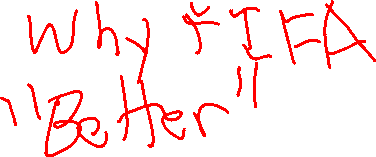 Why FIFA
"Better"